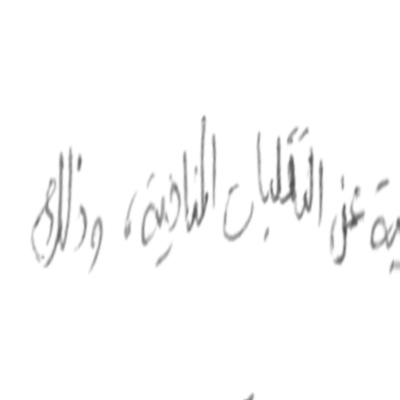 ية عن التقلبات المناخية، وذلك